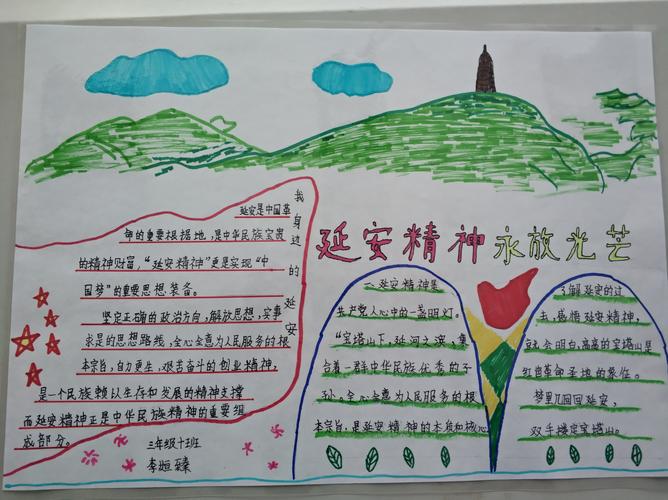 延安精神永放光芒
我身边的延安
延安是中国革
命的重要根据地，是中华民族宝贵
的精神财富，“延安精神”更是实现“中
国梦”的重要思想装备。
坚定正确的政治方向，解放思想，实事
求是的思想路线，全心全意为人民服务的根
本宗旨，自力更生，艰苦奋斗的创业精神，
是一个民族赖以生存和发展的精神支撑
而延安精神正是中华民族精神的重要组
成部分。
三年级十班
李姮臻
延安精神是
共产党人心中的一盏明灯。
“宝塔山下，延河之滨，集
合着一群中华民族优秀的子
孙。全心全意为人民服务的根
本宗旨，是延安精神的本质和核心
了解延安的过
去，感悟延安精神，
就会明白，高高的宝塔山是
红色革命圣地的象征。
梦里几回回延安，
双手搂定宝塔山。